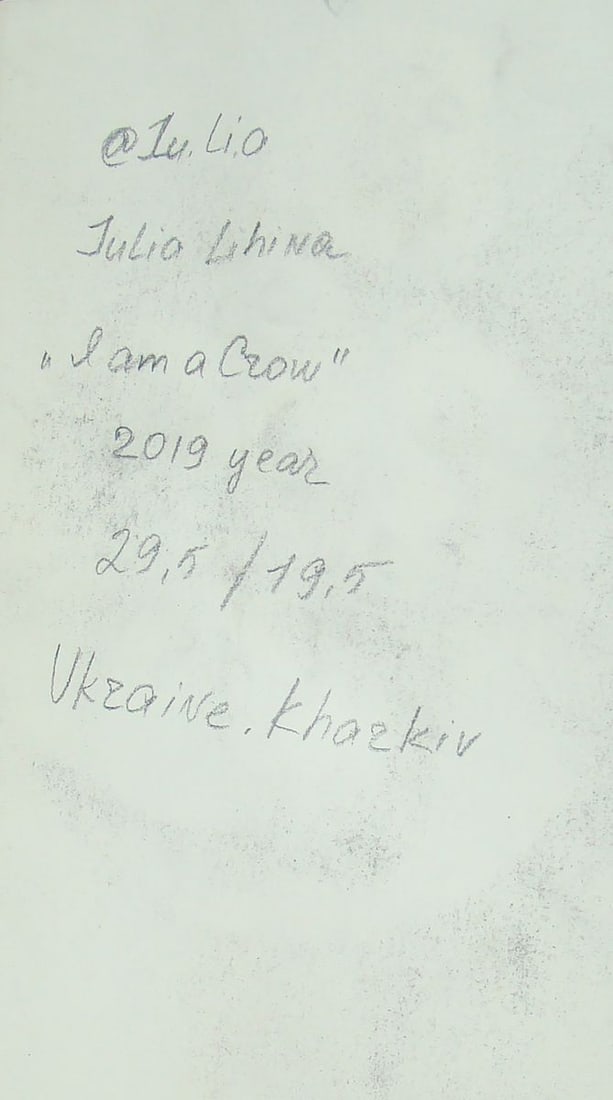 @Iu.Li.a
Julia Lihina
„I am a Crow"
2019 year
29,5 / 19,5
Ukraine. Kharkiv